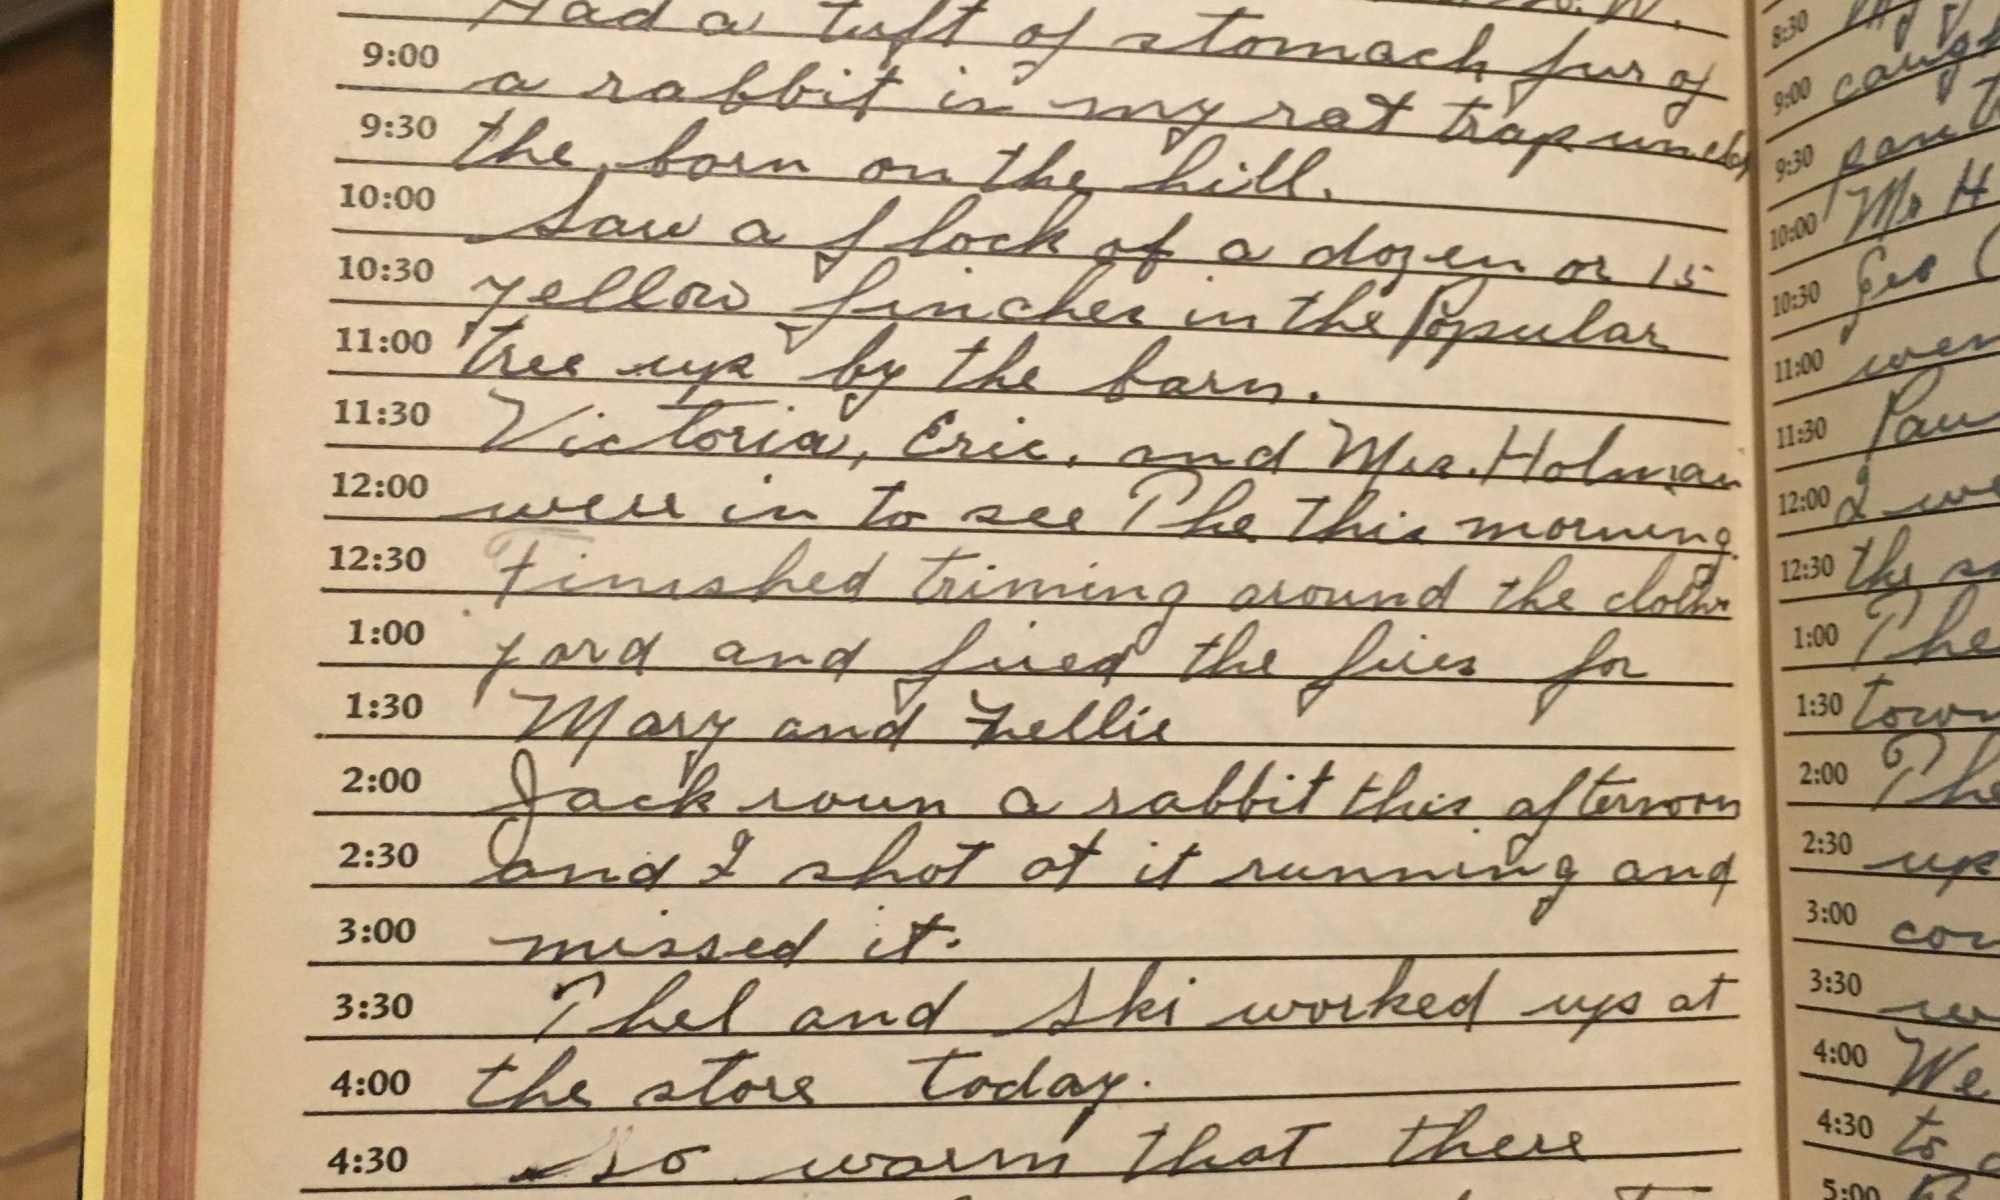 Had a tuft of stomach fur of
9:00 a rabbit in my rat trap under
9:30 the barn on the hill.
10:00 Saw a flock of a dozen or 15
10:30 yellow finches in the Popular
11:00 tree up by the barn.
11:30 Victoria, Eric, and Mrs. Holman
12:00 were in to see Phe this morning.
12:30 Finished triming around the cloths
1:00 yard and fixed the fires for
1:30 Mary and Nellie
2:00 Jack roun a rabbit this afternoon
2:30 and I shot at it running and
3:00 missed it.
3:30 Phel and Ski worked up at
4:00 the store today.
4:30 So warm that there
8:30
9:00 caugh
9:30
10:00 Mr H
10:30 Geo
11:00 wen
11:30 Pau
12:00 I we
12:30 the
1:00 Phe
1:30 town
2:00 Phe
2:30 up
3:00
3:30
4:00 We
4:30 to
5:00